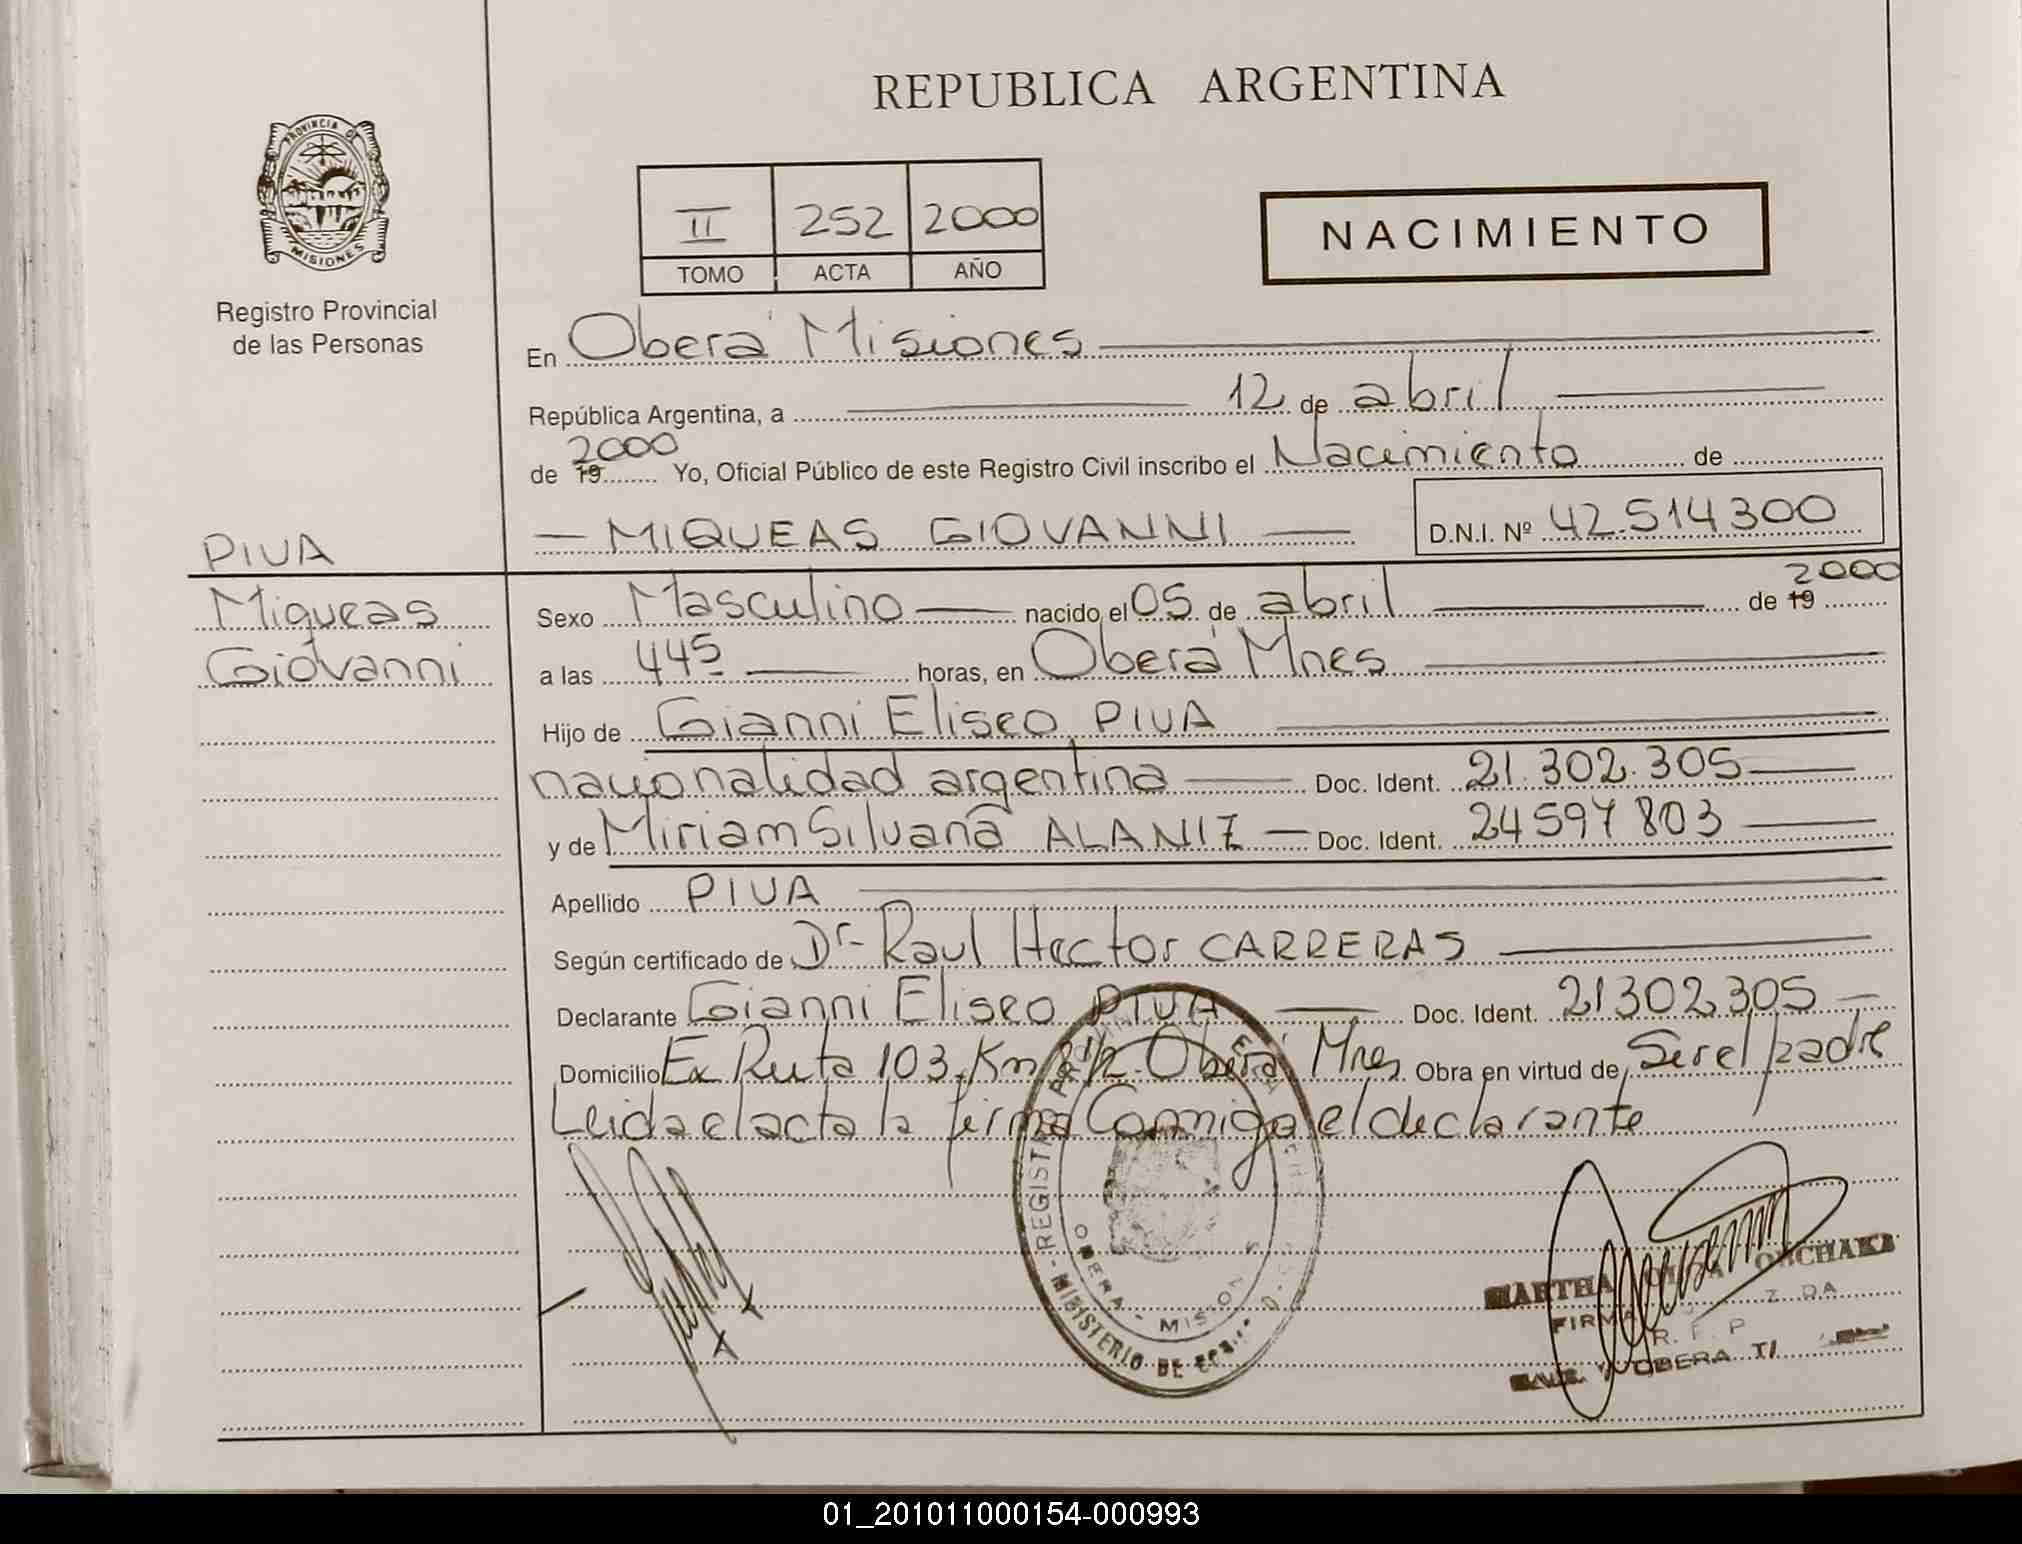 REPUBLICA ARGENTINA
PROVINCIA DE
MISIONES
Registro Provincial
de las Personas
II 252 2000
TOMO ACTA AÑO
NACIMIENTO
En Oberá Misiones
República Argentina, a 12 de abril
2000
de 19 Yo, Oficial Público de este Registro Civil inscribo el Nacimiento de
MIQUEAS GIOVANNI D.N.I. Nº 42.514300
PIVA
Miqueas
Giovanni
2000
Sexo Masculino nacido el 05 de abril de 19
a las 445 horas, en Oberá Mnes
Hijo de Gianni Eliseo PIVA
nacionalidad argentina Doc. Ident. 21.302.305
y de Miriam Silvana ALANIZ Doc. Ident. 24597803
Apellido PIVA
Según certificado de Dr. Raul Hector CARRERAS
Declarante Gianni Eliseo PIVA Doc. Ident. 21302305
Domicilio Ex Ruta 103 Km 8 1/2 Oberá Mnes Obra en virtud de Ser el padre
Leida el acta la firma Conmigo el declarante
REGISTRO
OBERA - MISION
MINISTERIO DE
MARTHA
FIRMA
R. P
OBERA
01_201011000154-000993